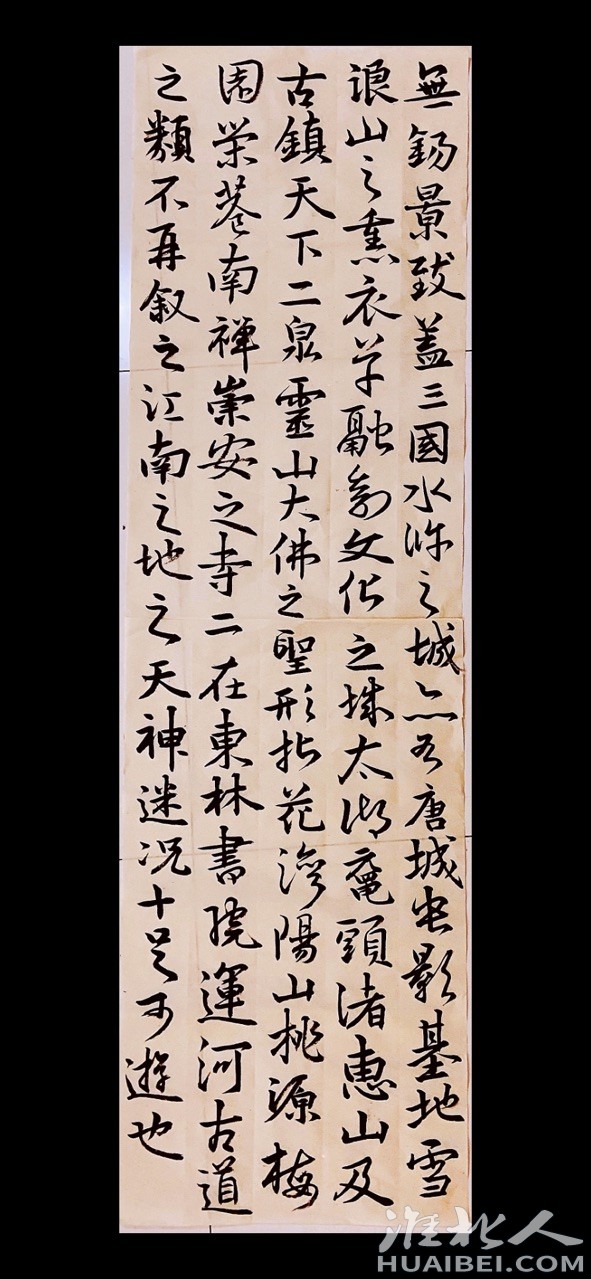 無錫景致蓋三國水滸之城亦有唐城電影基地雪
浪山之熏衣草融創文化之城太湖黿頭渚惠山及
古鎮天下二泉靈山大佛之聖形拈花灣陽山桃源梅
園榮巷南禪崇安之寺二在東林書院運河古道
之類不再敘之江南之地之天神迷況十足可遊也
淮北人
HUAIBEI.COM